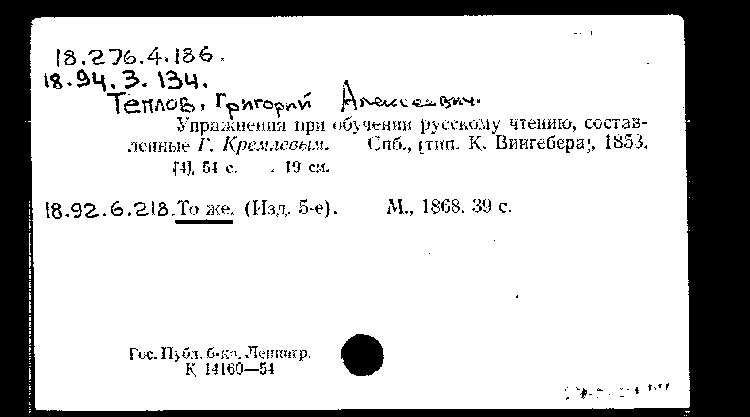 18.276.4.186.
18.94.3.134.
Теплов, Григорий Алексеевич.
Упражнения при обучении русскому чтению, состав-
ленные Г. Кремлевым. Спб., [тип. К. Вингебера], 1853.
[4], 54 с. 19 см.
18.92.6.218. То же. (Изд. 5-е). М., 1868. 39 с.
Гос. Публ. б-ка. Ленингр.
К 14160—54